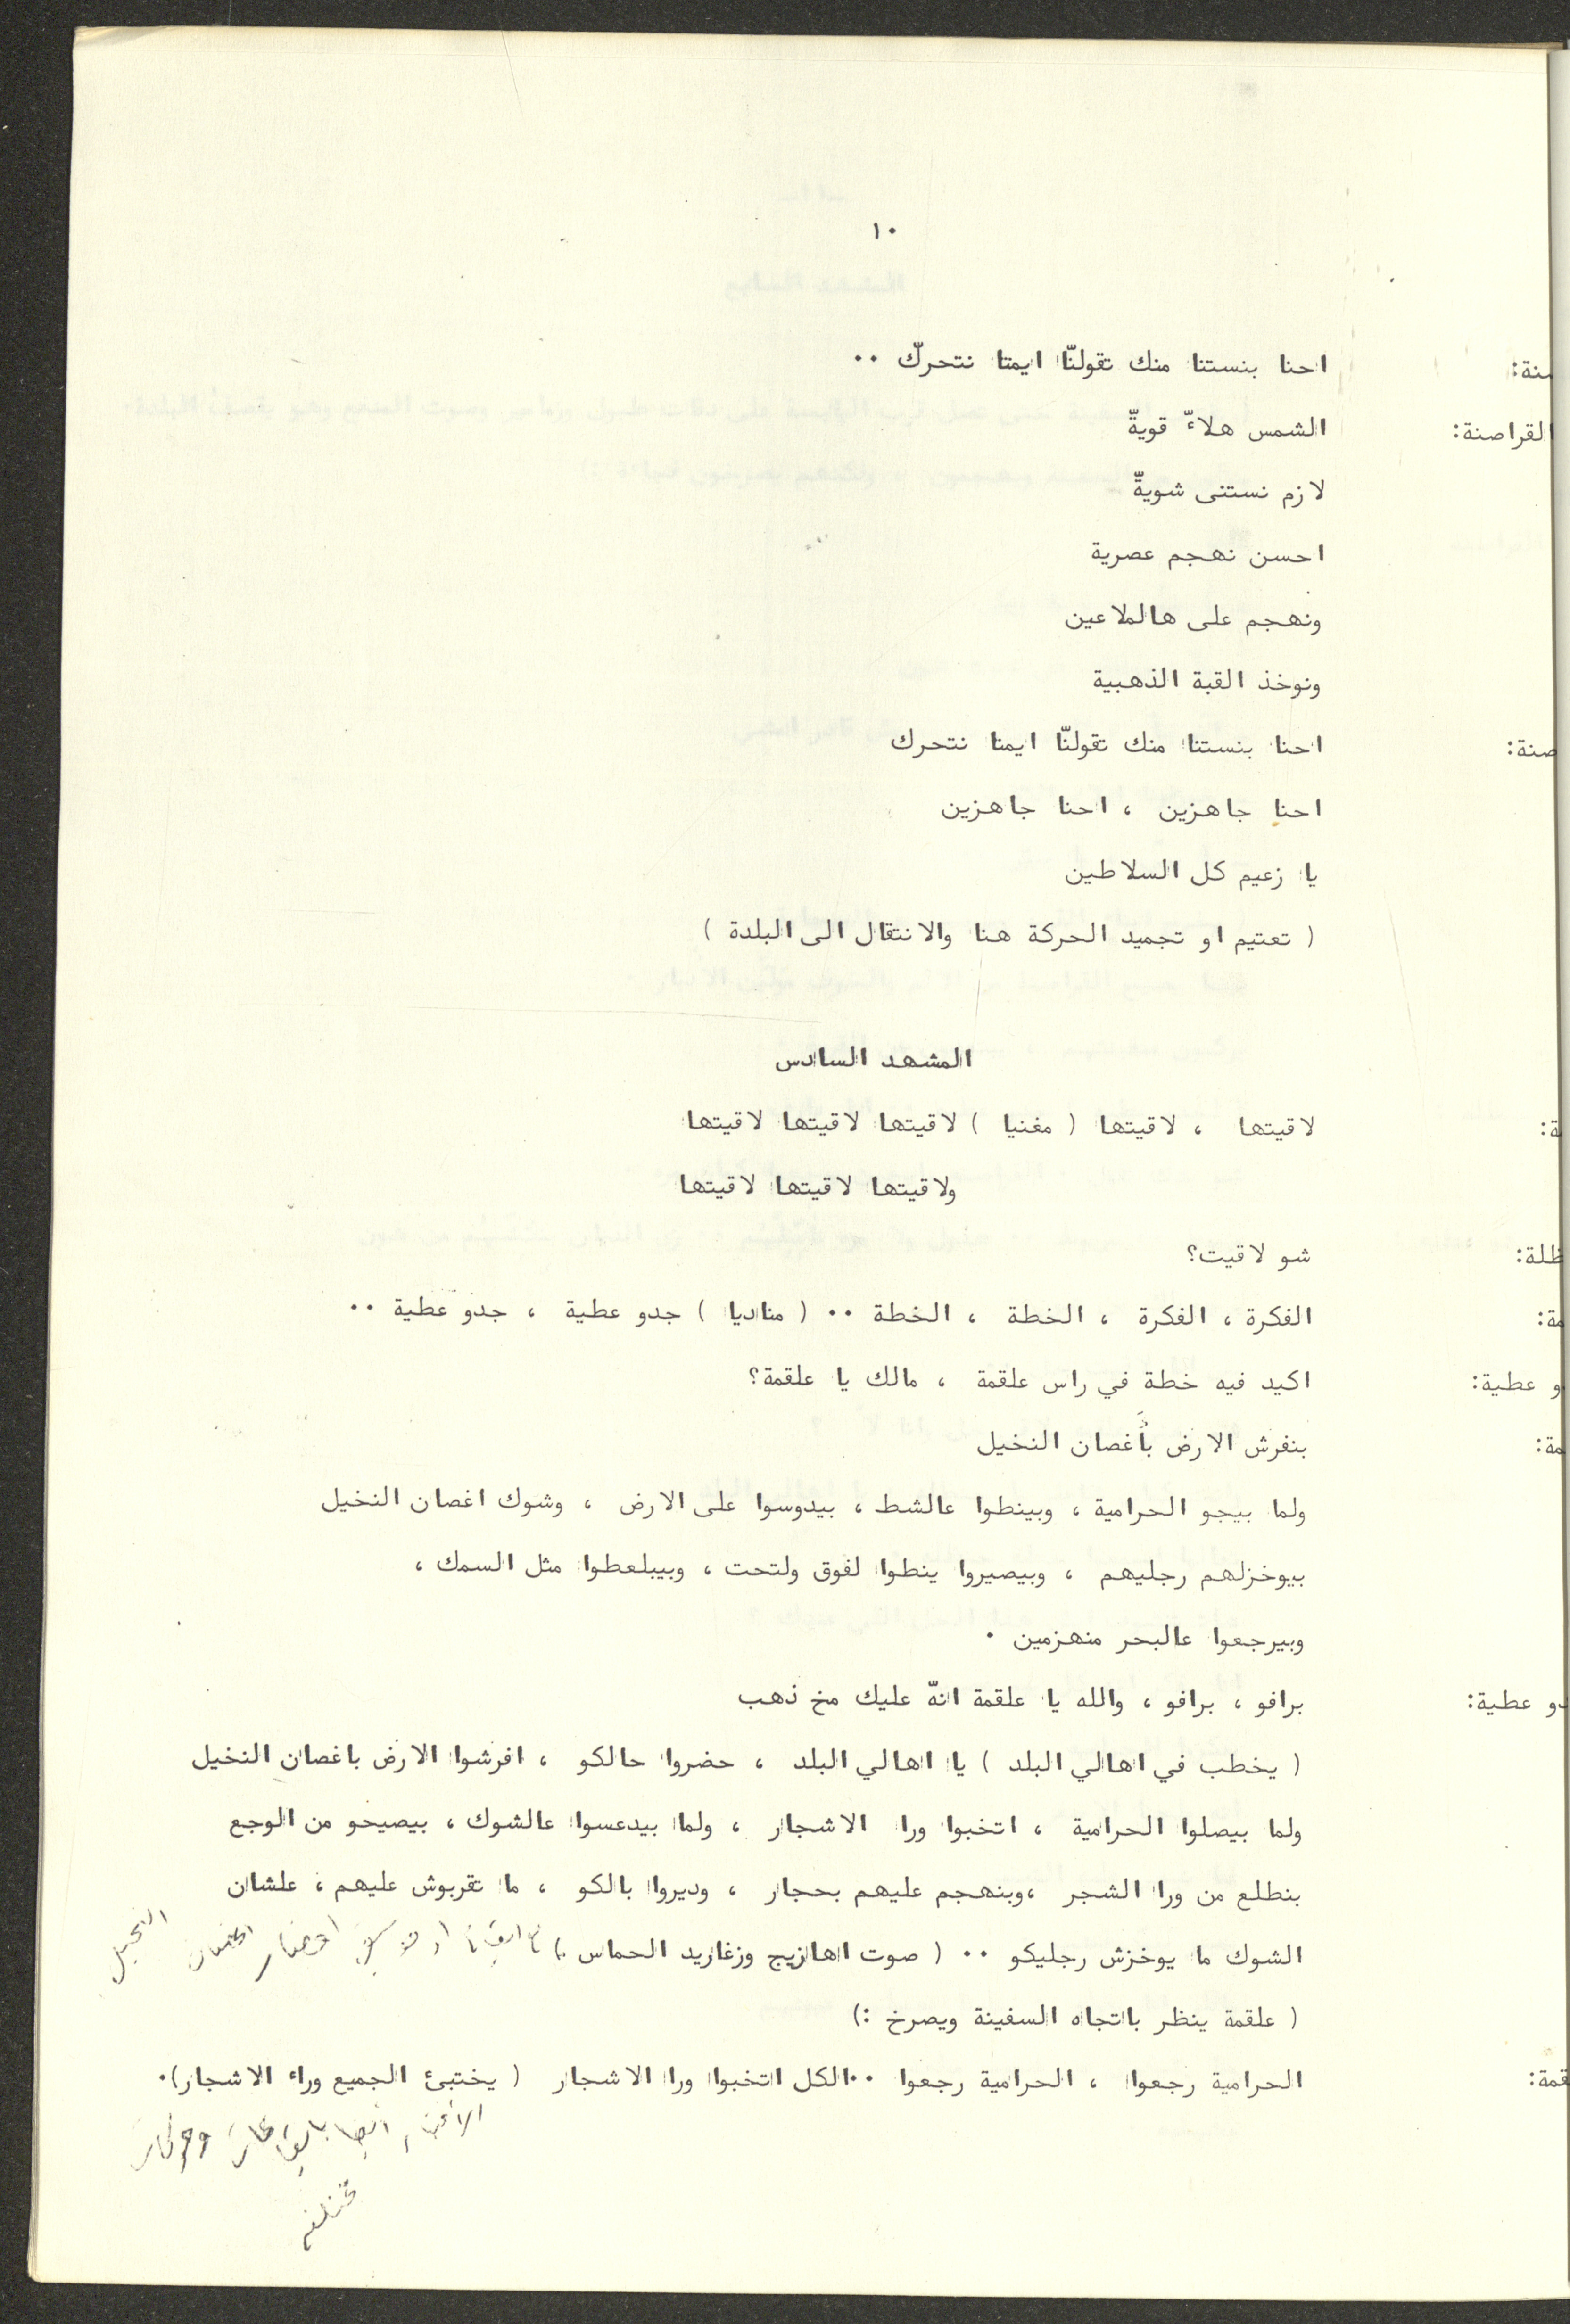 ١٠
صنة: احنا بنستنا منك تقولنّا ايمتا نتحركّ ٠٠
القراصنة: الشمس هلاءّ قويةّ
لازم نستنى شويةّ
احسن نهجم عصرية
ونهجم على هالملاعين
ونوخذ القبة الذهبية
صنة: احنا بنستنا منك تقولنّا ايمتا نتحرك
احنا جاهزين ، احنا جاهزين
يا زعيم كل السلاطين
( تعتيم او تجميد الحركة هنا والانتقال الى البلدة )
المشهد السادس
ة: لاقيتها ، لاقيتها ( مغنيا ) لاقيتها لاقيتها لاقيتها
ولاقيتها لاقيتها لاقيتها
ظلة: شو لاقيت؟
مة: الفكرة ، الفكرة ، الخطة ، الخطة ٠٠ ( مناديا ) جدو عطية ، جدو عطية ٠٠
و عطية: اكيد فيه خطة في راس علقمة ، مالك يا علقمة؟
مة: بنفرش الارض بأغصان النخيل
ولما بيجو الحرامية ، وبينطوا عالشط ، بيدوسوا على الارض ، وشوك اغصان النخيل
بيوخزلهم رجليهم ، وبيصيروا ينطوا لفوق ولتحت ، وبيبلعطوا مثل السمك ،
وبيرجعوا عالبحر منهزمين ٠
دو عطية: برافو ، برافو ، والله يا علقمة انهّ عليك مخ ذهب
( يخطب في اهالي البلد ) يا اهالي البلد ، حضروا حالكو ، افرشوا الارض باغصان النخيل
ولما بيصلوا الحرامية ، اتخبوا ورا الاشجار ، ولما بيدعسوا عالشوك ، بيصيحو من الوجع
بنطلع من ورا الشجر ،وبنهجم عليهم بحجار ، وديروا بالكو ، ما تقربوش عليهم ، علشان
الشوك ما يوخزش رجليكو ٠٠ ( صوت اهازيج وزغاريد الحماس ٠)
( علقمة ينظر باتجاه السفينة ويصرخ :)
قمة: الحرامية رجعوا ، الحرامية رجعوا ٠٠الكل اتخبوا ورا الاشجار ( يختبئ الجميع وراء الاشجار)٠